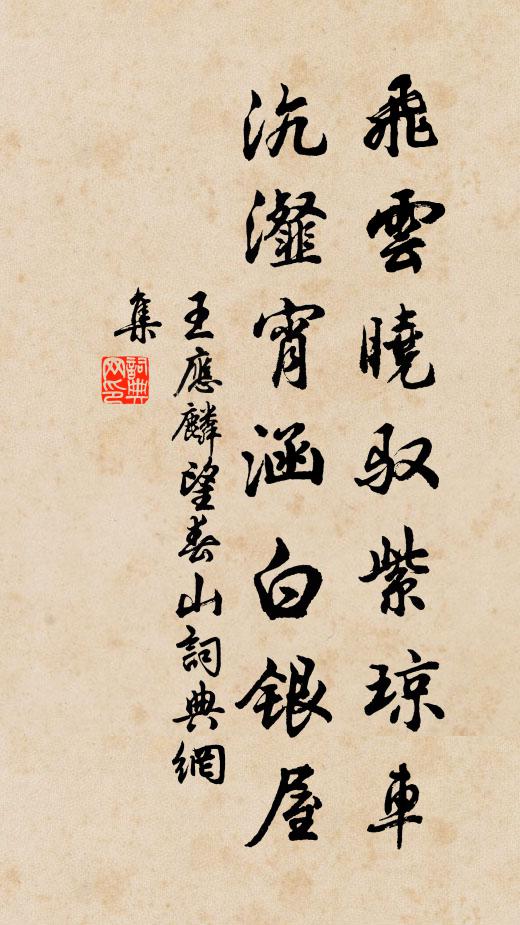 飛雲曉馭紫琼車
沆瀣宵涵白銀屋
王應麟望春山詞典網
集
詞典
网印